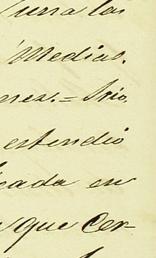 Curra las
Medias.
nez.= Srio.
estendió
cada en
que Cer-